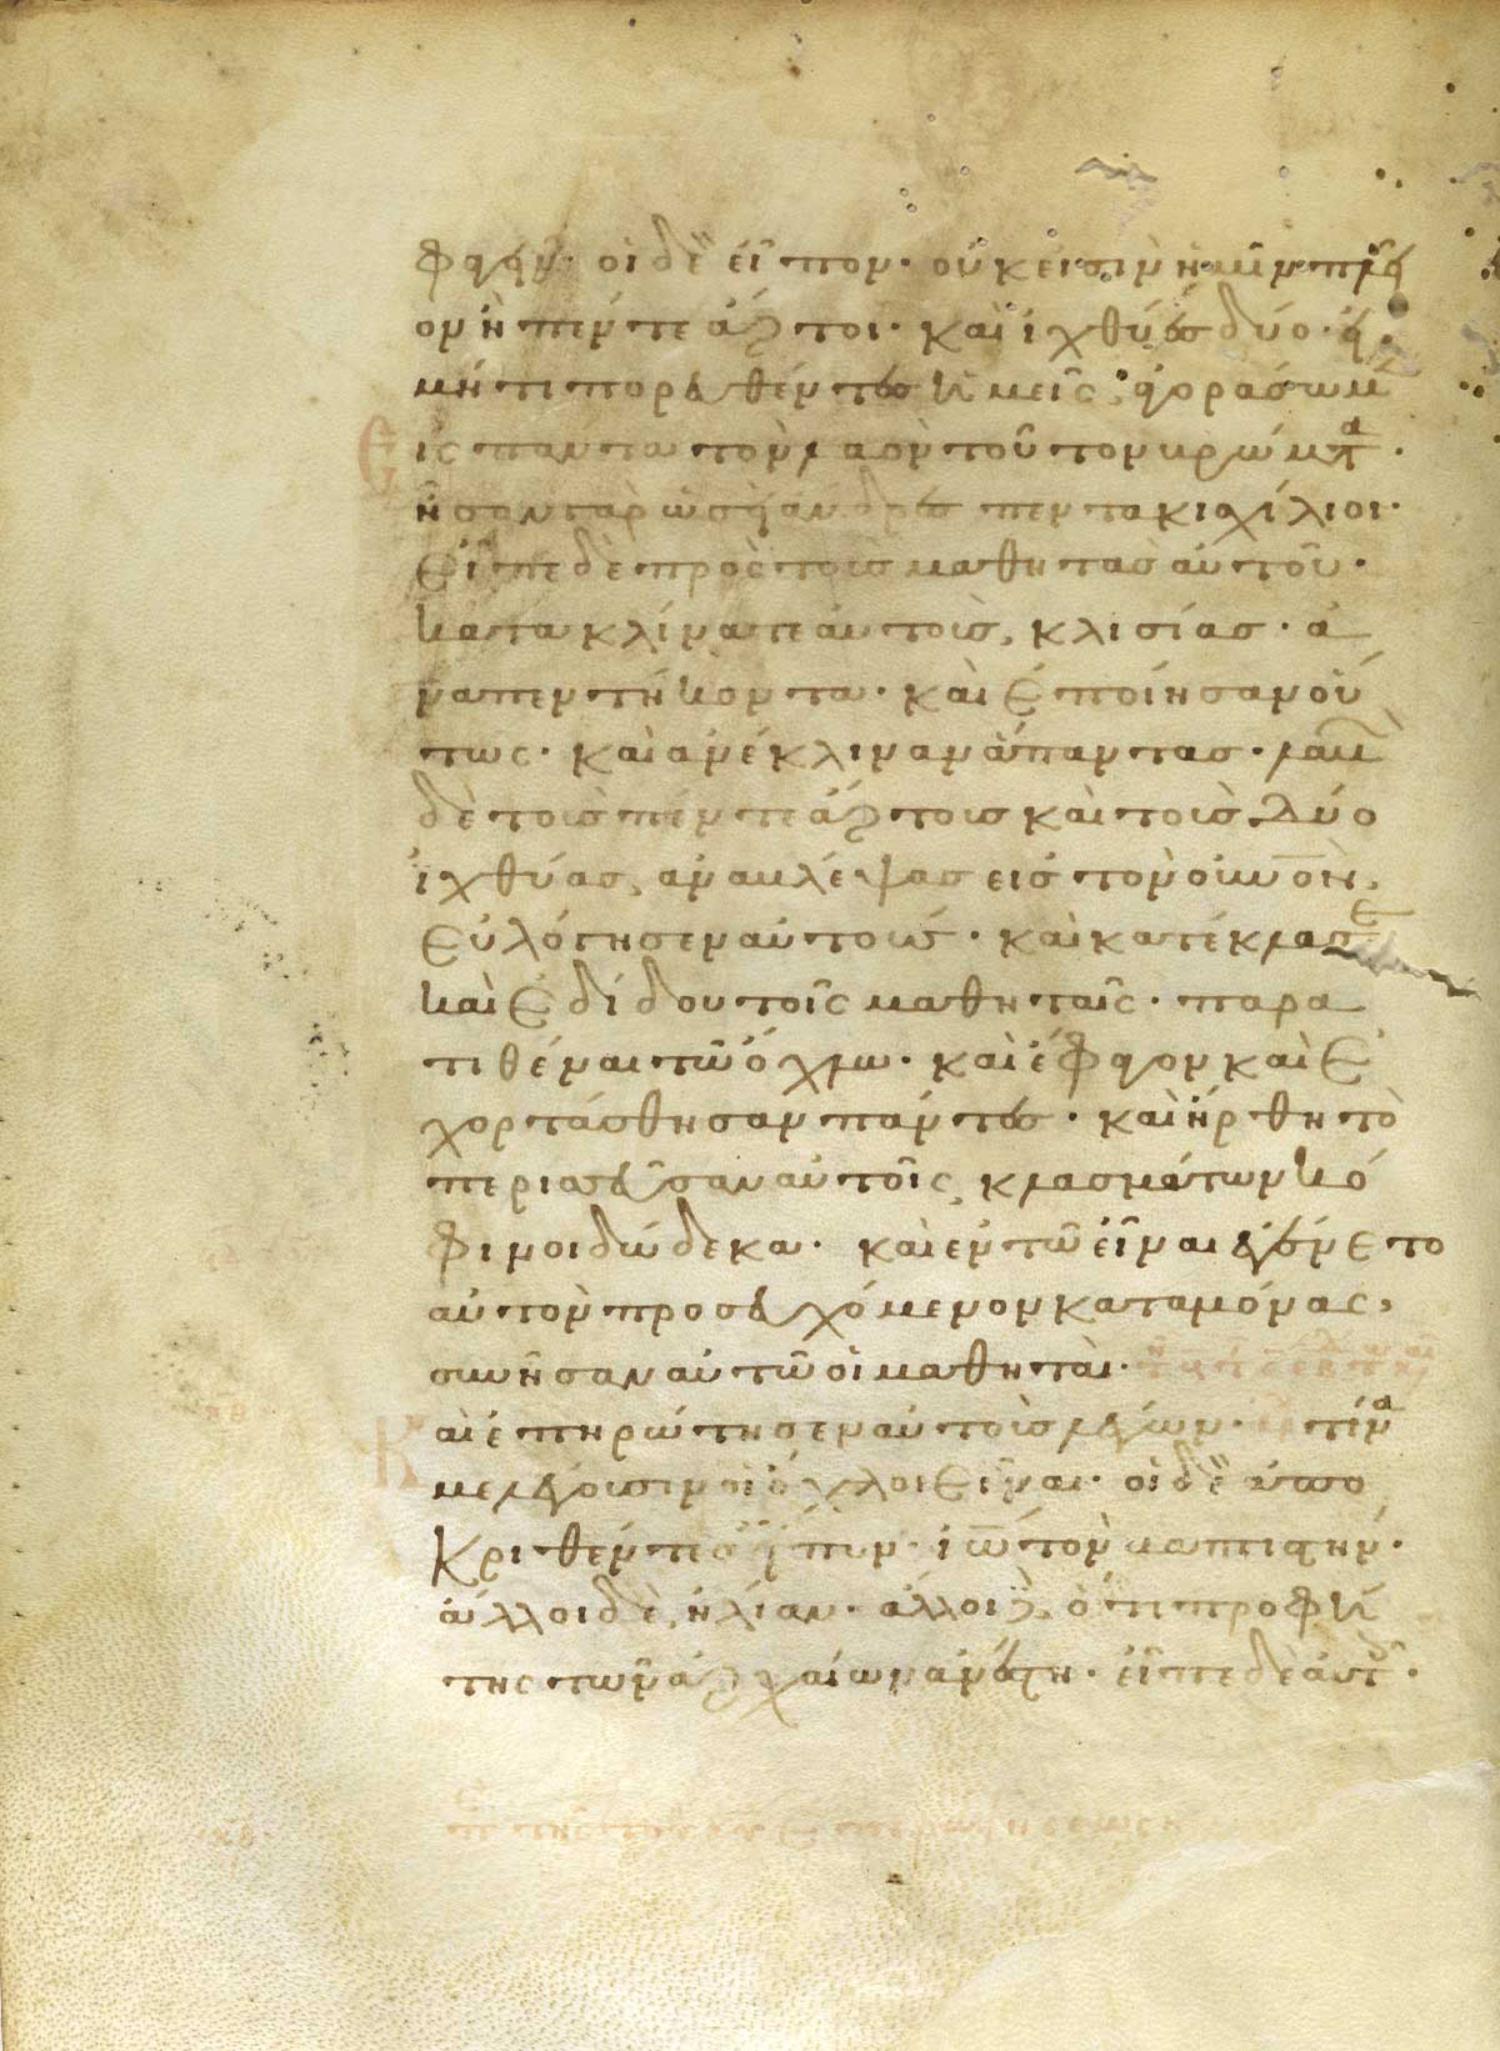 φαγεῖν· οἱ δὲ εἶπον· οὐκ εἰσὶν ἡμῖν πλεῖ
ον ἢ πέντε ἄρτοι· καὶ ἰχθύες δύο· εἰ
μήτι πορευθέντες ἡμεῖς ἀγοράσωμ
εἰς πάντα τὸν λαὸν τοῦτον βρώματα·
ἦσαν γὰρ ὡσεὶ ἄνδρες πεντακισχίλιοι·
εἶπε δὲ πρὸς τοὺς μαθητὰς αὐτοῦ·
κατακλίνατε αὐτοὺς, κλισίας· ἀ
να πεντήκοντα· καὶ ἐποίησαν οὕ
τως· καὶ ἀνέκλιναν ἅπαντας· λαβ
δὲ τοὺς πέντε ἄρτους καὶ τοὺς δύο
ἰχθύας, ἀναβλέψας εἰς τὸν οὐνὸν,
εὐλόγησεν αὐτούς· καὶ κατέκλασε
καὶ ἐδίδου τοῖς μαθηταῖς· παρα
τιθέναι τῶ ὄχλω· καὶ ἔφαγον καὶ ἐ
χορτάσθησαν πάντες· καὶ ἤρθη τὸ
περισσεῦσαν αὐτοῖς κλασμάτων κό
φινοι δώδεκα· καὶ ἐγένετο ἐν τῶ εἶναι
αὐτὸν προσευχόμενον καταμόνας,
συνῆσαν αὐτῶ οἱ μαθηταὶ·
καὶ ἐπηρώτησεν αὐτοὺς λέγων· τίνα
με λέγουσιν οἱ ὄχλοι εἶναι· οἱ δὲ ἀπο
κριθέντες εἶπον· ἰω τὸν βαπτιστήν·
ἄλλοι δὲ, ἠλίαν· ἄλλοι δὲ, ὅτι προφή
της τῶν ἀρχαίων ἀνέστη· εἶπε δὲ αὐτοῖς·